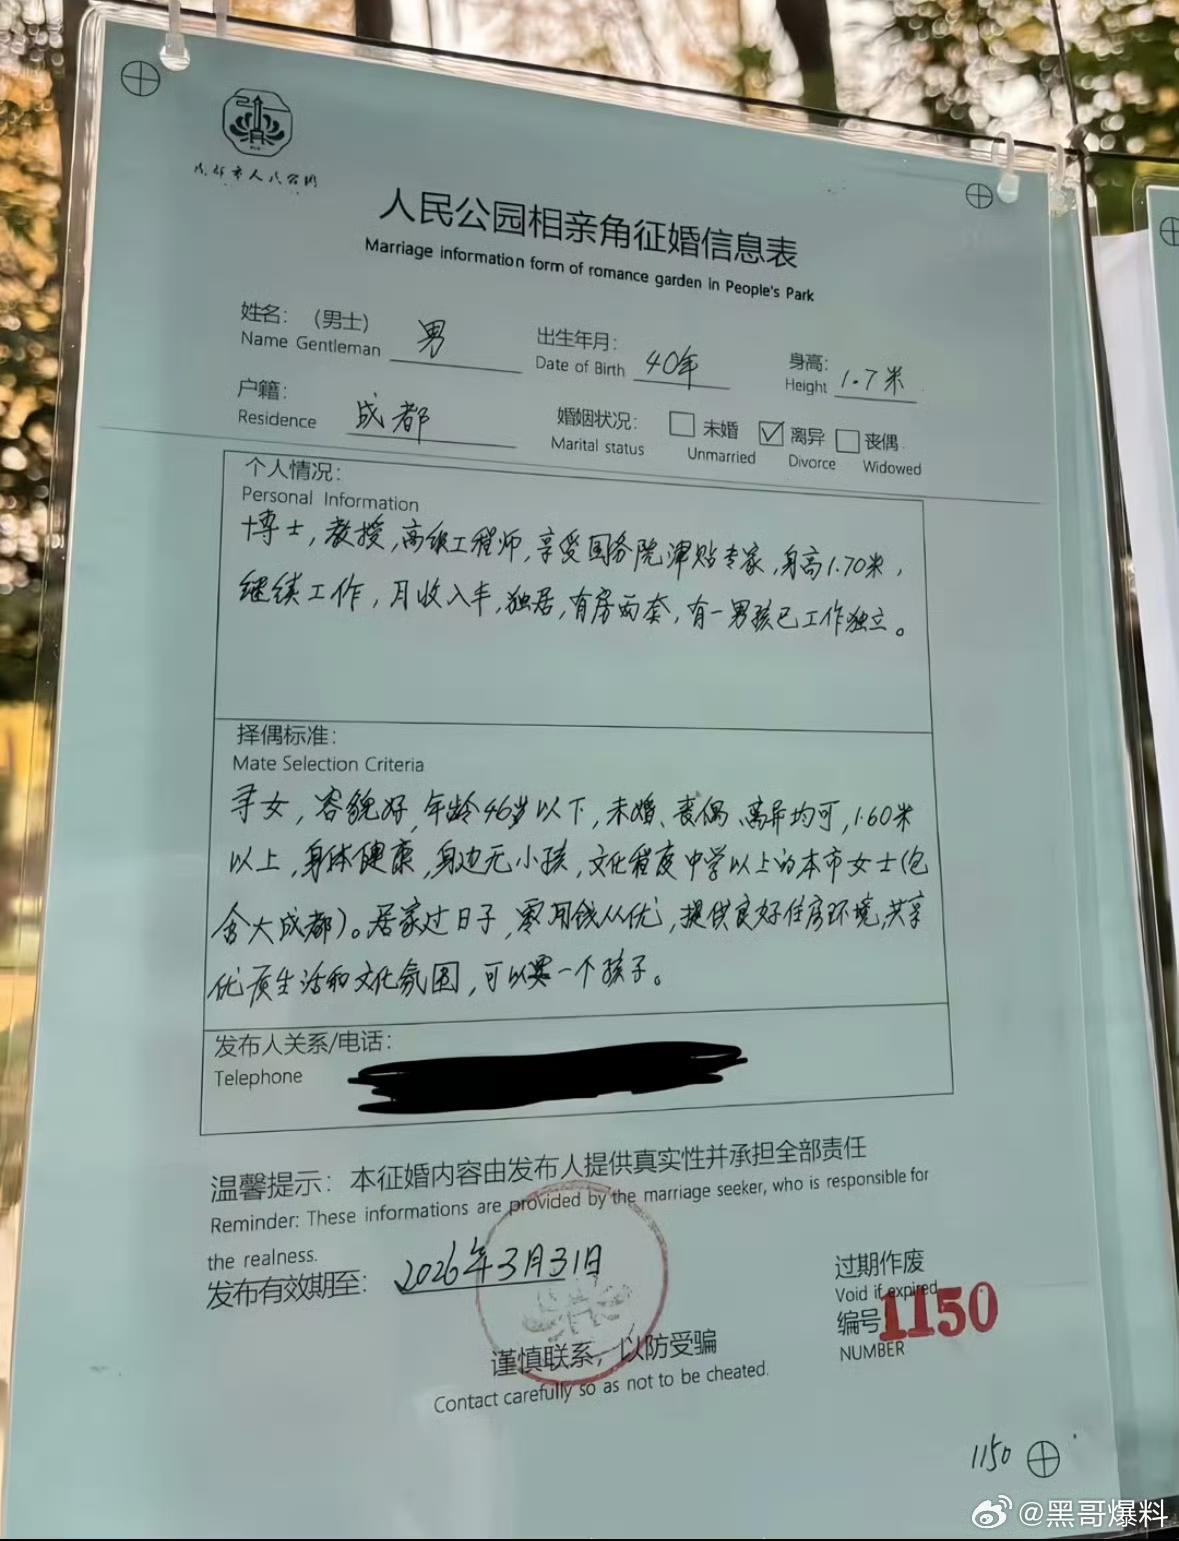 成都市人民公园
人民公园相亲角征婚信息表
Marriage information form of romance garden in People's Park
姓名：（男士） 男 出生年月： 40年 身高： 1.7米
Name Gentleman Date of Birth Height
户籍： 成都 婚姻状况： 未婚 ☑ 离异 丧偶
Residence Marital status Unmarried Divorce Widowed
个人情况：
Personal Information
博士，教授，高级工程师，享受国务院津贴专家，身高1.70米，
继续工作，月收入丰，独居，有房两套，有一男孩已工作独立。
择偶标准：
Mate Selection Criteria
寻女，容貌好，年龄46岁以下，未婚、丧偶、离异均可，1.60米
以上，身体健康，身边无小孩，文化程度中学以上的本市女士（包
含大成都）。居家过日子，零用钱从优，提供良好住房环境，共享
优质生活和文化氛围，可以要一个孩子。
发布人关系/电话：
Telephone
温馨提示：本征婚内容由发布人提供真实性并承担全部责任
Reminder: These informations are provided by the marriage seeker, who is responsible for
the realness.
发布有效期至： 2026年3月31日
过期作废
Void if expired
编号 1150
NUMBER
谨慎联系，以防受骗
Contact carefully so as not to be cheated.
1150
@黑哥爆料